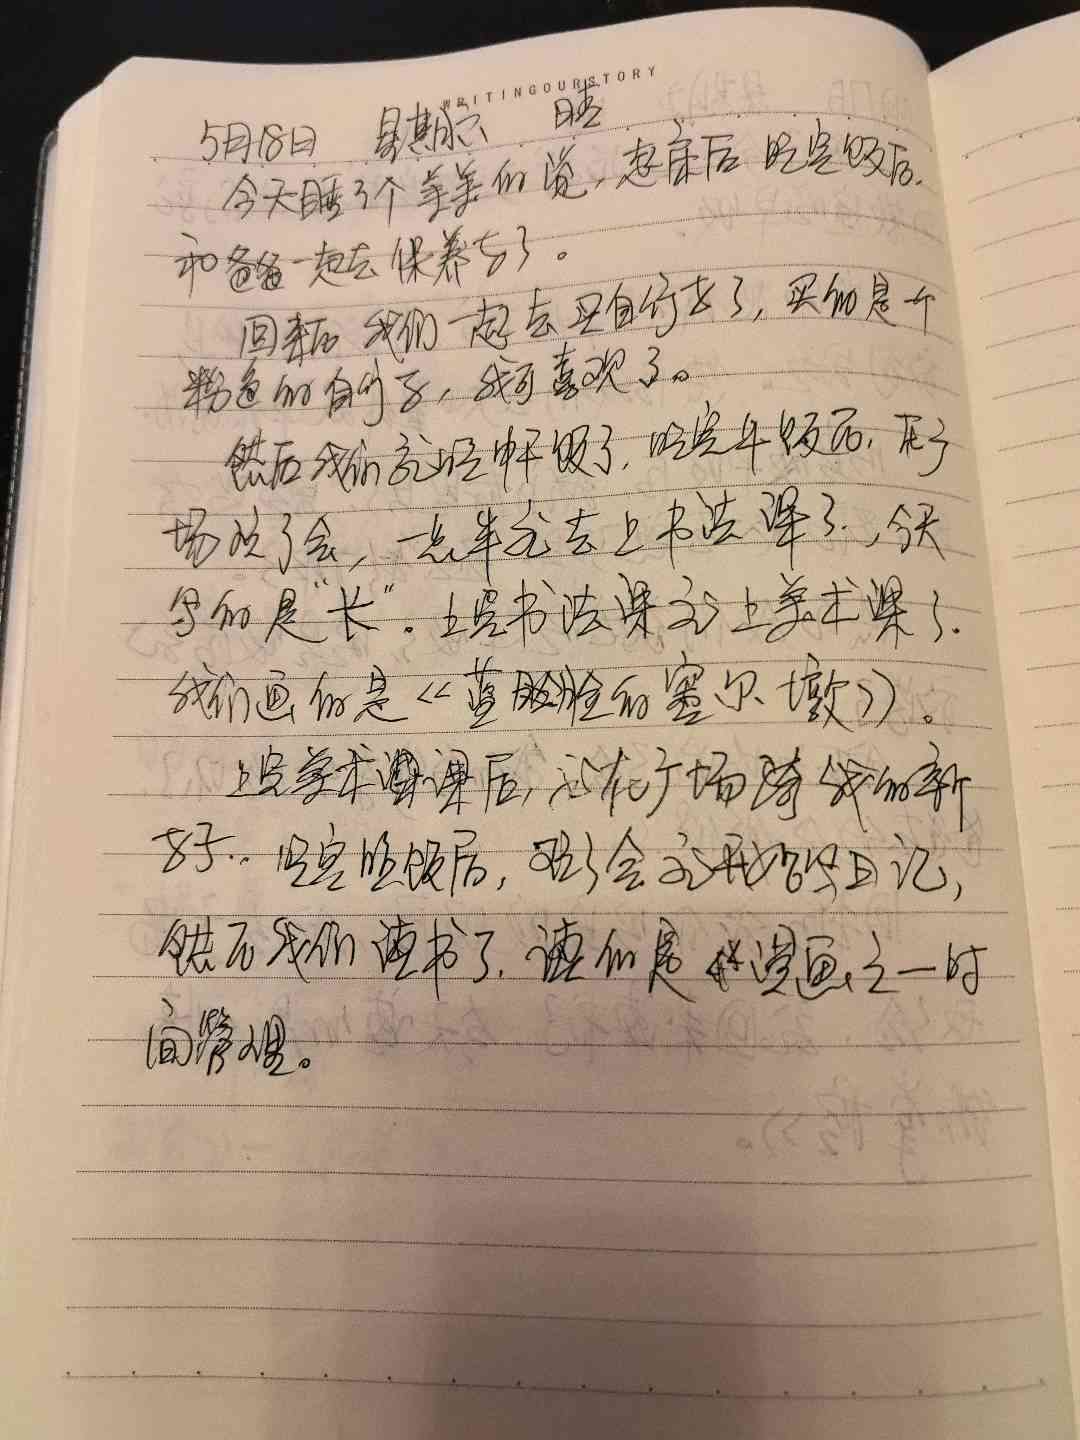 WRITINGOURSTORY
5月18日 星期六 晴
今天睡了个美美的觉,起床后吃完饭后,
和爸爸一起去保养车了。
回来后我们一起去买自行车了,买的是个
粉色的自行车,我可喜欢了。
然后我们就吃中午饭了,吃完午饭后,在广
场玩了会,一点半就去上书法课了,今天
写的是“长”。上完书法课就上美术课了.
我们画的是《蓝脸的塞尔 墩》。
上完美术课后,就在广场骑我的新
车子..吃完晚饭后,歇了会就开始写日记,
然后我们读书了.读的是 漫画之一时
间管理。